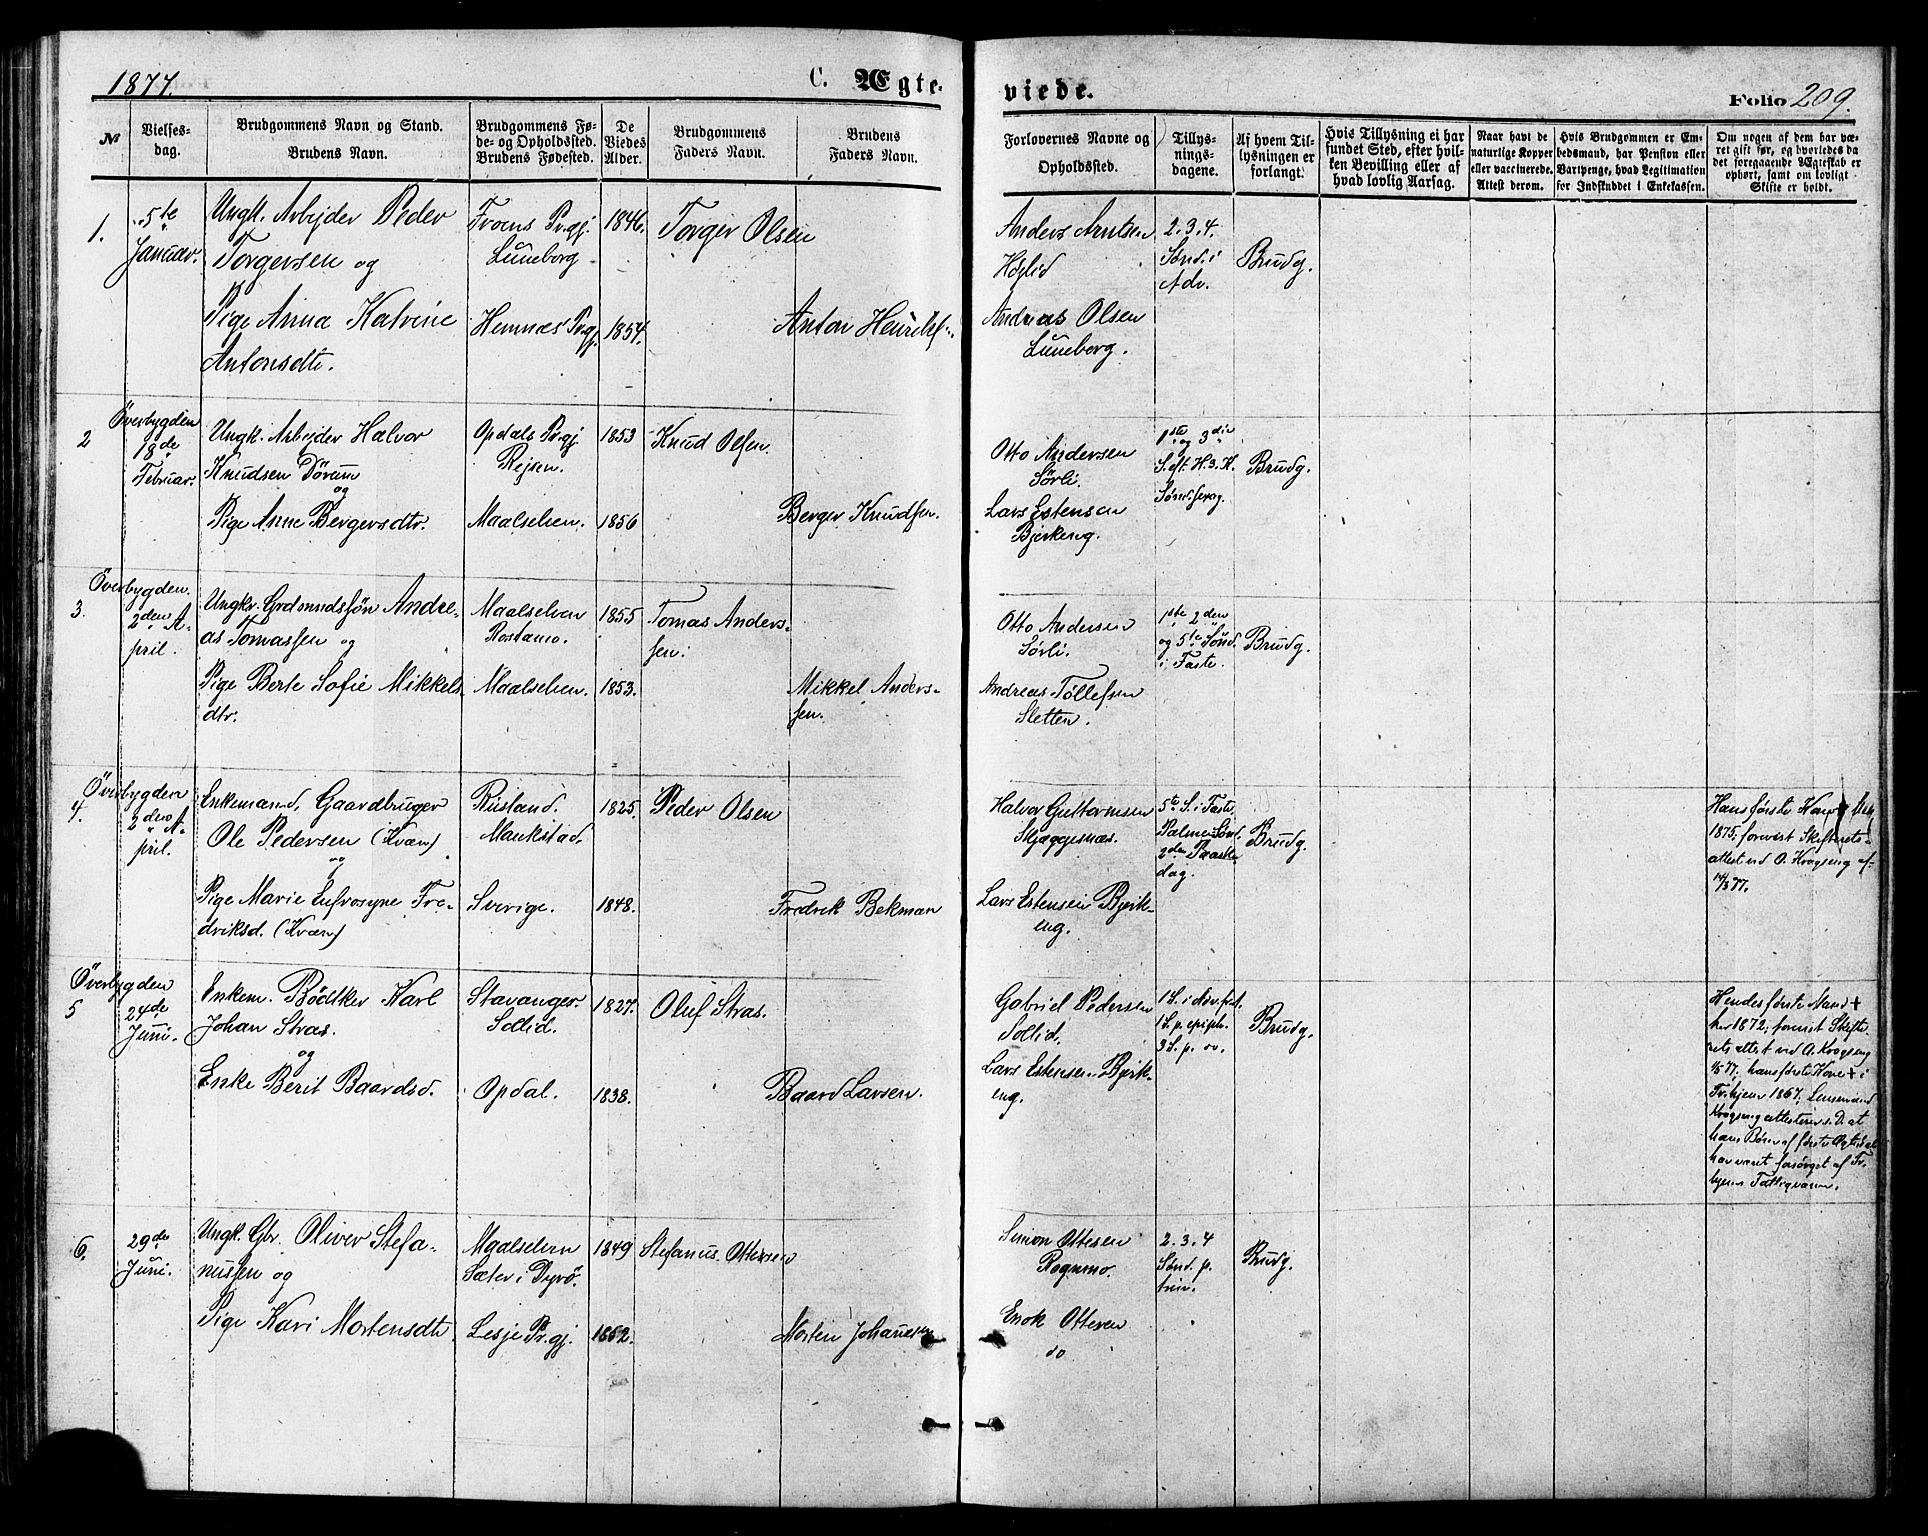 1877.
C. Ægte-
viede.
Folio 209.
№
Vielses-
dag.
Brudgommens Navn og Stand.
Brudens Navn.
Brudgommens Fø-
de- og Opholdssted.
Brudens Fødested.
De
Viedes
Alder.
Brudgommens
Faders Navn.
Brudens
Faders Navn.
Forlovernes Navne og
Opholdssted.
Tillys-
nings-
dagene.
Af hvem Til-
lysningen er
forlangt.
Hvis Tillysning ei har
fundet Sted, efter hvil-
ken Bevilling eller af
hvad lovlig Aarsag.
Naar havt de
naturlige Kopper
eller vaccinerede.
Attest derom.
Hvis Brudgommen er Em-
bedsmand, har Pension eller
Vartpenge, hvad Legitimation
for Indskuddet i Enkekassen.
Om nogen af dem har væ-
ret gift før, og hvorledes da
det foregaaende Ægteskab er
ophørt, samt om lovligt
Skifte er holdt.
1.
5te
Januar.
Ungk. Arbejder Peder
Torgersen og
Pige Anna Katrine
Antonsdtr.
Troms Prgj.
Luneborg
Hemnæs Prgj.
1846.
1854.
Torger Olsen
Anton Henriks
Anders Arntsen
Höglid
Andreas Olsen
Luneborg.
2.3.4.
Sönd. i
Adv.
Brudg.
2
Överbygden
18de
Februar.
Ungk. Arbejder Halvor
Knudsen Dörum
og
Pige Anne Bergersdtr.
Opdals Prgj.
Rejsen.
Maalselven.
1853
1856
Knud Olsen.
Berger Knudsen.
Otto Andersen
Sörli.
Lars Estensen
Bjerkeng.
1ste og 3die
S. eft. H. 3. K.
Brudg.
3.
Överbygden.
2den A-
pril.
Ungkr. Grdmundssön Andre-
as Tomassen og
Pige Berte Sofie Mikkels
dtr.
Maalselven
Rostamo.
Maalselven.
1855
1853.
Tomas Anders-
sen.
Mikkel Anders-
sen.
Otto Andersen
Sörli.
Andreas Tollefsen
Sletten.
1ste 2den
og 5te Sönd.
i Faste.
Brudg.
4.
Överbygden
2den A-
pril.
Enkemand, Gaardbruger
Ole Pedersen (Kvæn)
og
Pige Marie Eufrosyne Fre-
driksd. (Kvæn)
Rustand.
Maukstad.
Sverige.
1825.
1848.
Peder Olsen
Fredrik Bekman
Halvor Guttormsen
Skjæggesnæs.
Lars Estensen Bjerk-
eng.
5te S. i Faste
Palme Sönd.
2den Paaske
dag.
Brudg.
Hans förste Kone
1875, forevist Skifterets-
attest ved O. Krogseng af
14/3 77.
5
Överbygden
24de
Juni.
Enkem. Bödtker Karl
Johan Stras.
og
Enke Berit Baardsd.
Stavanger
Sollid.
Opdal.
1827.
1838.
Oluf Stras.
Baard Larsen.
Gabriel Pedersen
Sollid.
Lars Estensen Bjerk-
eng.
1 S. i
1 S. p. epiph.
3 S. p.
Brudg.
Hendes förste Mand +
her 1872, forevist Skifte
rets attest ved O. Krogseng
hans förste Kone + i
Trhjem 1867. Lensmand
Krogseng attesterer s. D. at
hans Börn af förste Ægteskab
har været forsörget af Tr.
hjems Fattigvæsen.
6.
29de
Juni.
Ungk. Gbr. Oliver Stefa-
nussen og
Pige Kari Mortensdtr.
Maalselven
Sæter i Dyrö.
Lesje Prgj.
1849
1852.
Stefanus Ottersen
Morten Johansen
Simon Ottesen
Rognmo.
Enok Ottesen
do
2.3.4
Sönd. p.
trin.
Brudg.